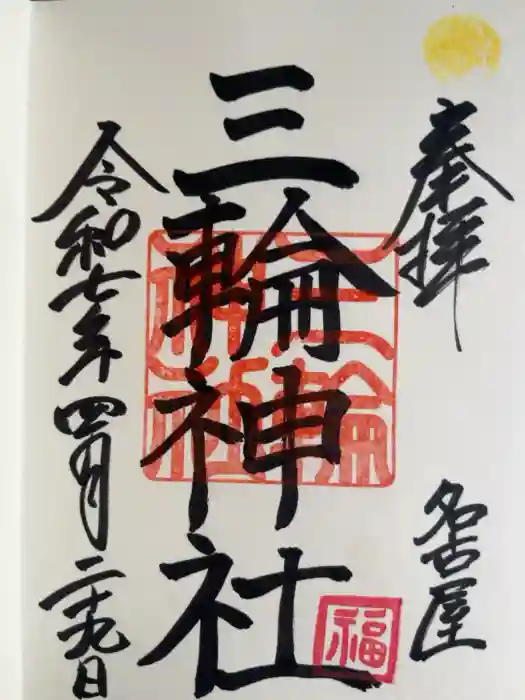 奉拝
名古屋
三輪神社
三輪神社
福
令和七年四月二十九日